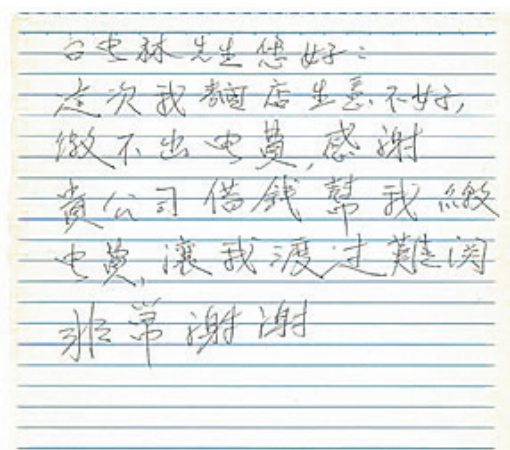 白屯林先生您好：
这次我麵店生意不好，
缴不出电費，感谢
貴公司借銭幫我缴
电費，讓我渡过難関
非常谢谢